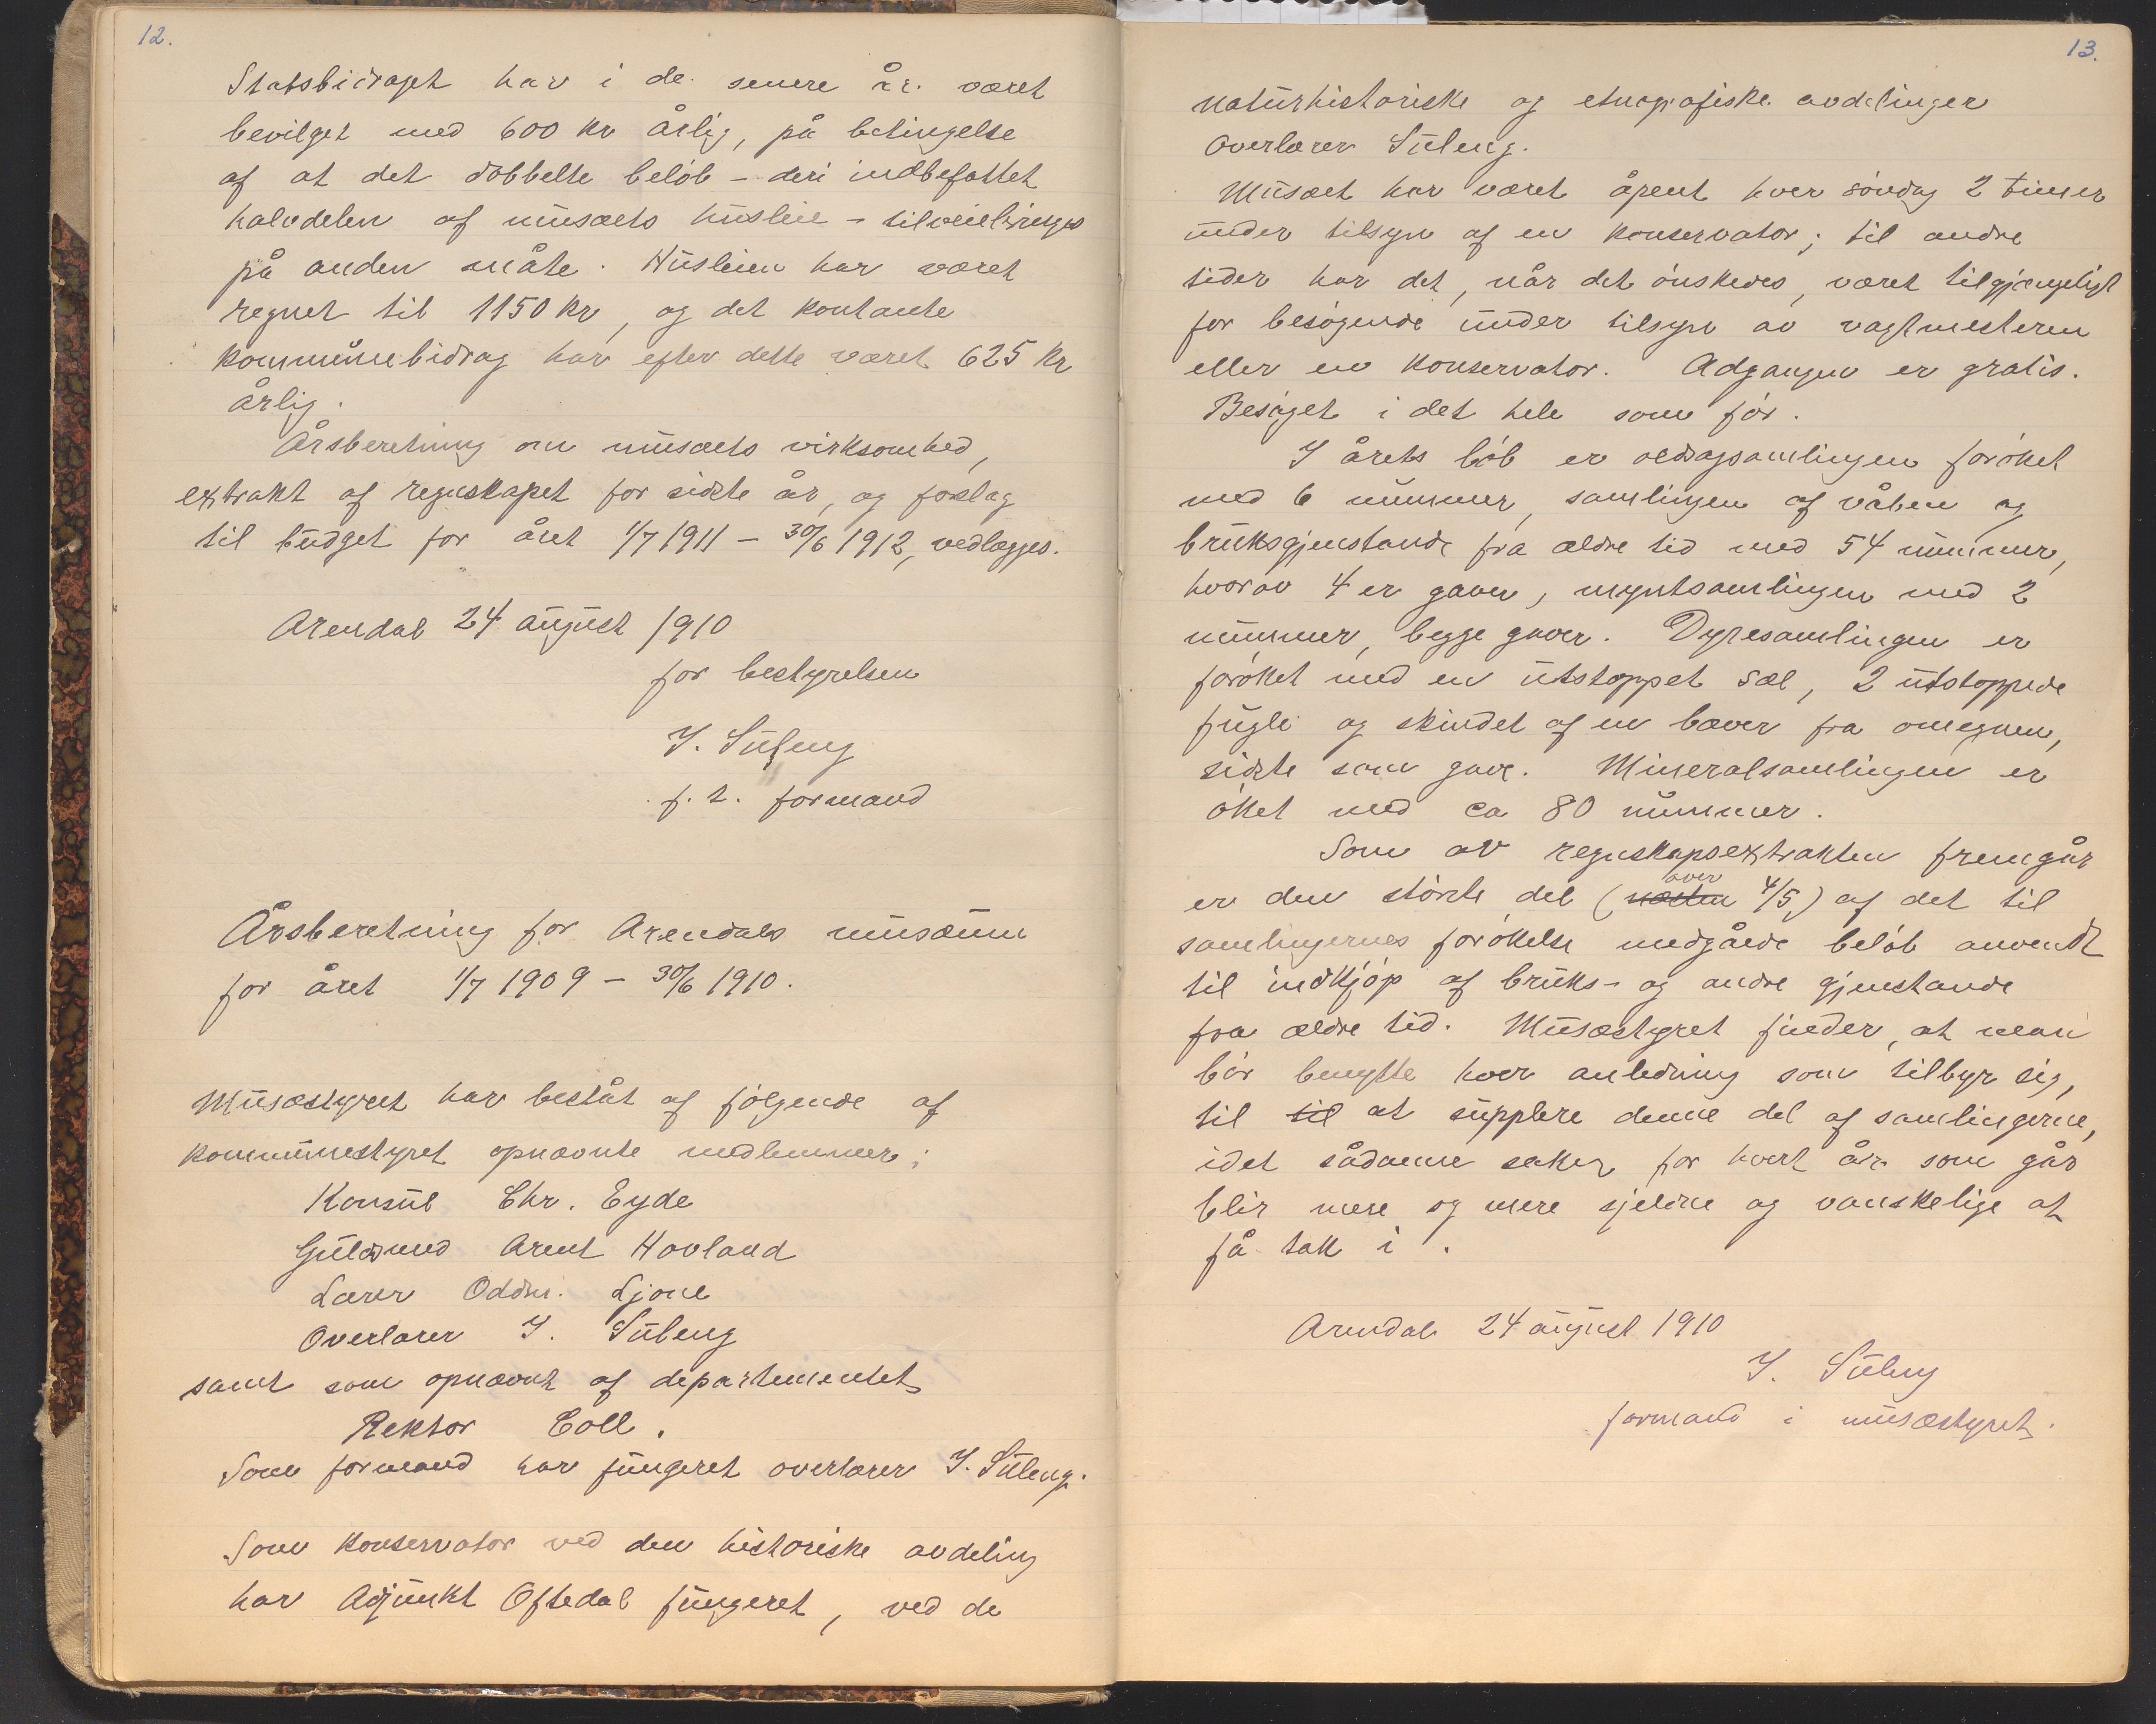 12.
Statsbidraget har i de senere år været
bevilget med 600 kr årlig, på betingelse
af at det dobbelte beløb – deri indbefattet
halvdelen af musæets husleie – tilveiebringes
på anden måte. Husleien har været
regnet til 1150 kr, og det kontante
kommunebidrag har efter dette været 625 kr
årlig.
Årsberetning om musæets virksomhed,
extrakt af regnskapet for sidste år, og forslag
til budget for året 1/7 1911 – 30/6 1912, vedlægges.
Arendal 24 august 1910
for bestyrelsen
J. Suleng
f. t. formand
Årsberetning for Arendals musæum
for året 1/7 1909 – 30/6 1910.
Musæstyret har bestått af følgende af
kommunestyret opnævnte medlemmer:
Konsul Chr. Eyde
Guldsmed Arent Hovland
Lærer Oddm. Ljone
Overlærer J. Suleng
samt som opnævnt af departementet
Rektor Coll.
Som formand har fungeret overlærer J. Suleng.
Som konservator ved den historiske avdeling
har Adjunkt Oftedal fungeret, ved de
13.
naturhistoriske og etnografiske avdelinger
Overlærer Suleng.
Musæet har været åpent hver søndag 2 timer
under tilsyn af en konservator; til andre
tider har det, når det ønskedes, været tilgjængeligt
for besøgende under tilsyn av vagtmesteren
eller en konservator. Adgangen er gratis.
Besøget i det hele som før.
I årets løb er oldsagsamlingen forøket
med 6 nummer, samlingen af våben og
bruksgjenstande fra ældre tid med 54 nummer,
hvorav 4 er gaver, myntsamlingen med 2
nummer, begge gaver. Dyresamlingen er
forøket med en utstoppet sæl, 2 utstoppede
fugle og skindet af en bæver fra omegnen,
sidste som gave. Mineralsamlingen er
øket med ca 80 nummer.
Som av regnskapsextrakten fremgår
over
er den største del (næsten 4/5) af det til
samlingernes forøkelse medgåede beløb anvendt
til indkjøp af bruks- og andre gjenstande
fra ældre tid. Musæstyret finder, at man
bør benytte hver anledning som tilbyr sig,
til til at supplere denne del af samlingerne,
idet sådanne saker for hvert år som går
blir mere og mere sjeldne og vanskelige at
få tak i.
Arendal 24 august 1910
J. Suleng
formand i musæstyret.